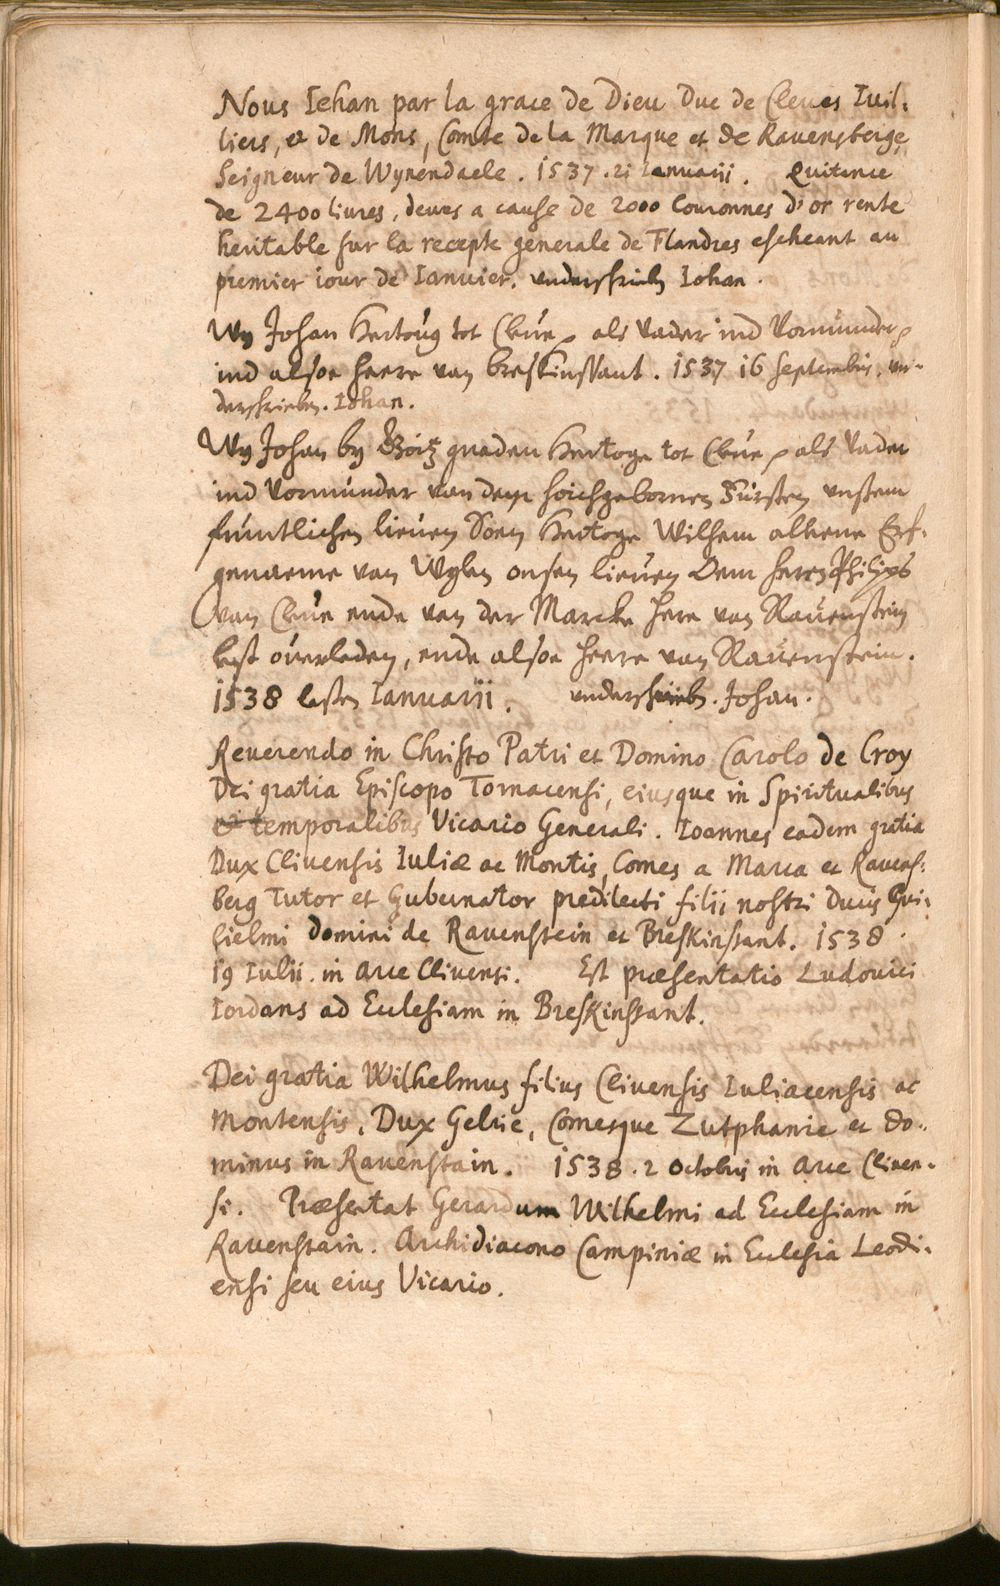 Nous Iehan par la grace de Dieu Duc de Cleues Iuil-
liers, & de Mons, Comte de la Marque et de Rauensberge,
Seigneur de Wynendaele. 1537. 21 Ianuarii. Quitance
de 2400 liures, deues a cause de 2000 Couronnes d'or rente
heritable sur la recepte generale de Flandres escheant au
premier iour de Ianuier. underschrieb Iohan.
Wy Johan Hertoug tot Cleue als Vader ind Vormunder
ind alsoe heere van Breskinssant. 1537 16 Septembris. un-
derschrieben. Iohan.
Wy Johan by Gotz gnaden Hertoge tot Cleue als Vader
ind Vormunder van dem hoichgebornen Fürsten unssem
fruntlichen lieuen Soen Hertoge Wilhem alleene Erf-
genaeme van Wylen onsen lieuen Oem heren Philips
van Cleue ende van der Marcke here van Rauenstein
lest ouerleden, ende alsoe heere van Rauenstein.
1538 lesten Ianuarii. underschrieb. Johan.
Reuerendo in Christo Patri et Domino Carolo de Croy
Dei gratia Episcopo Tornacensi, eiusque in Spiritualibus
& temporalibus Vicario Generali. Ioannes eadem gratia
Dux Cliuensis Iuliæ ac Montis, Comes a Marca et Rauens-
berg Tutor et Gubernator predilecti filii nostri Ducis Gui-
lielmi domini de Rauenstein et Breskinssant. 1538.
19 Iulii. in Arce Cliuensi. Est præsentatio Ludouici
Iordans ad Ecclesiam in Breskinssant.
Dei gratia Wilhelmus filius Cliuensis Iuliacensis ac
Montensis, Dux Gelrie, Comesque Zutphanie et Do-
minus in Rauenstain. 1538. 2 Octobris in Arce Cliuen-
si. Præsentat Gerardum Wilhelmi ad Ecclesiam in
Rauenstain. Archidiacono Campiniæ in Ecclesia Leodi-
ensi seu eius Vicario.